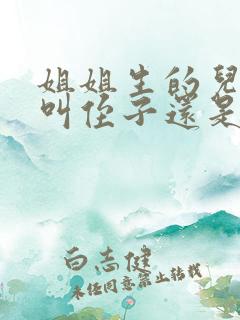 姐姐生的兒
叫侄子還是
白志健
未经同意禁止转载